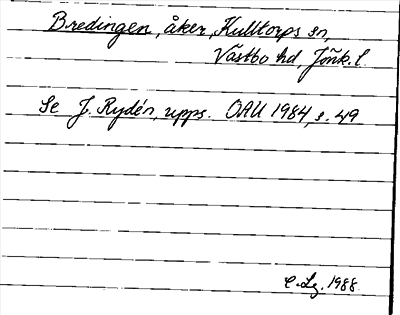 Bredingen, åker, Kulltorps sn,
Västbo hd, Jönk. l.
Se J. Rydén, upps. OAU 1984, s. 49
C. Lg. 1988